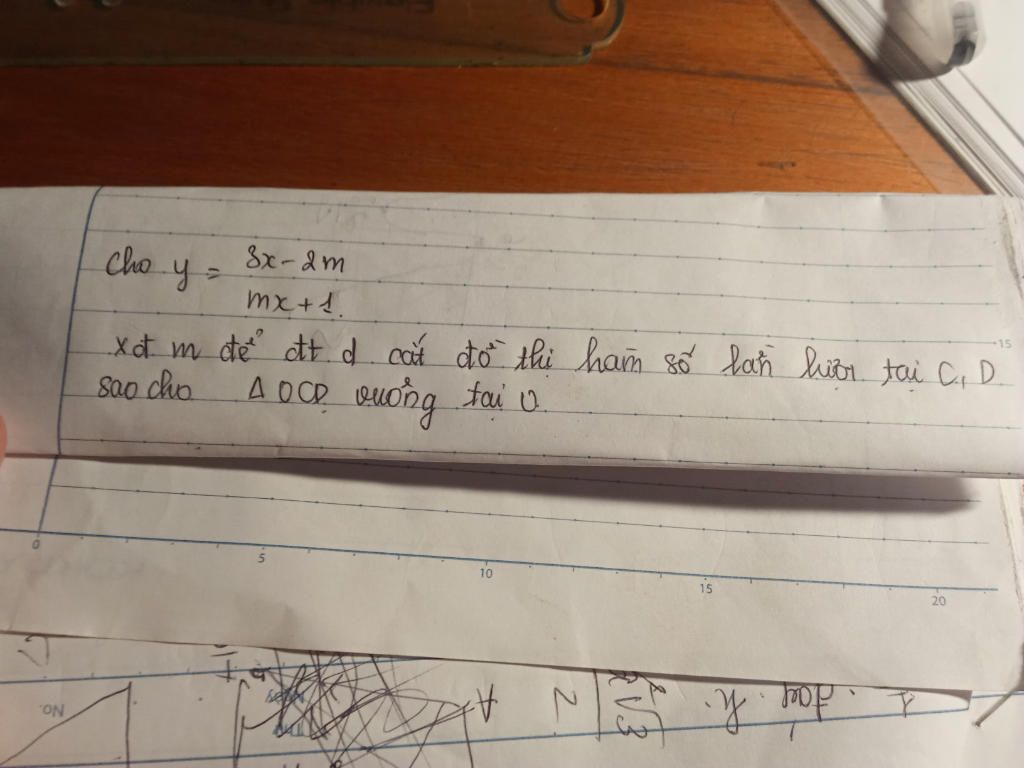 Cho y = 3x - 2m
mx + 1.
xđ m để đt d cắt đồ thị hàm số lần lượt tại C, D
sao cho Δ OCD vuông tại O
15
0 5 10 15 20
No.
A
2